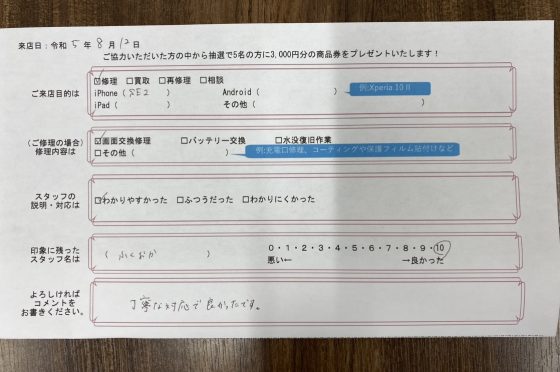 来店日：令和 5 年 8 月 12 日
ご協力いただいた方の中から抽選で5名の方に3,000円分の商品券をプレゼントいたします！
ご来店目的は
☑修理 □買取 □再修理 □相談
iPhone（ SE2 ） Android（ ） 例:Xperia 10 II
iPad（ ） その他（ ）
（ご修理の場合）
修理内容は
☑画面交換修理 □バッテリー交換 □水没復旧作業
□その他（ ） 例:充電口修理、コーティングや保護フィルム貼付けなど
スタッフの
説明・対応は
☑わかりやすかった □ふつうだった □わかりにくかった
印象に残った
スタッフ名は
（ ふくおか ）
0・1・2・3・4・5・6・7・8・9・10
悪い← →良かった
よろしければ
コメントを
お書きください。
丁寧な対応で良かったです。